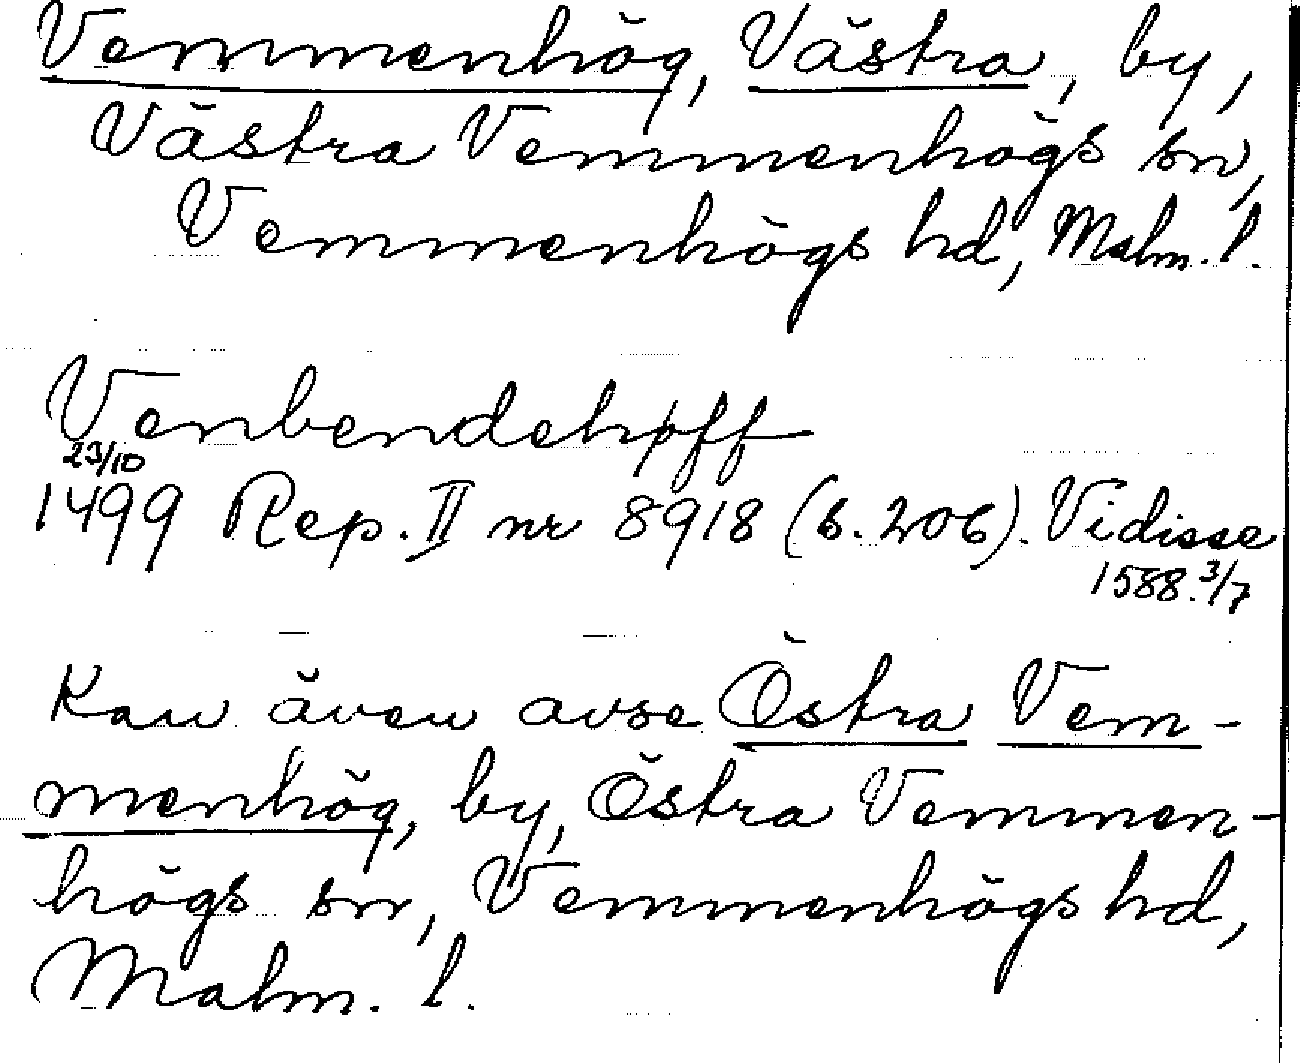 Vemmenhög, Västra, by,
Västra Vemmenhögs sn,
Vemmenhögs hd, Malm. l.
Venbendehpff
23/10
1499 Rep. II nr 8918 (s. 206). Vidisse
1588. 3/7
Kan även avse Östra Vem-
menhög, by, Östra Vemmen-
högs sn, Vemmenhögs hd,
Malm. l.